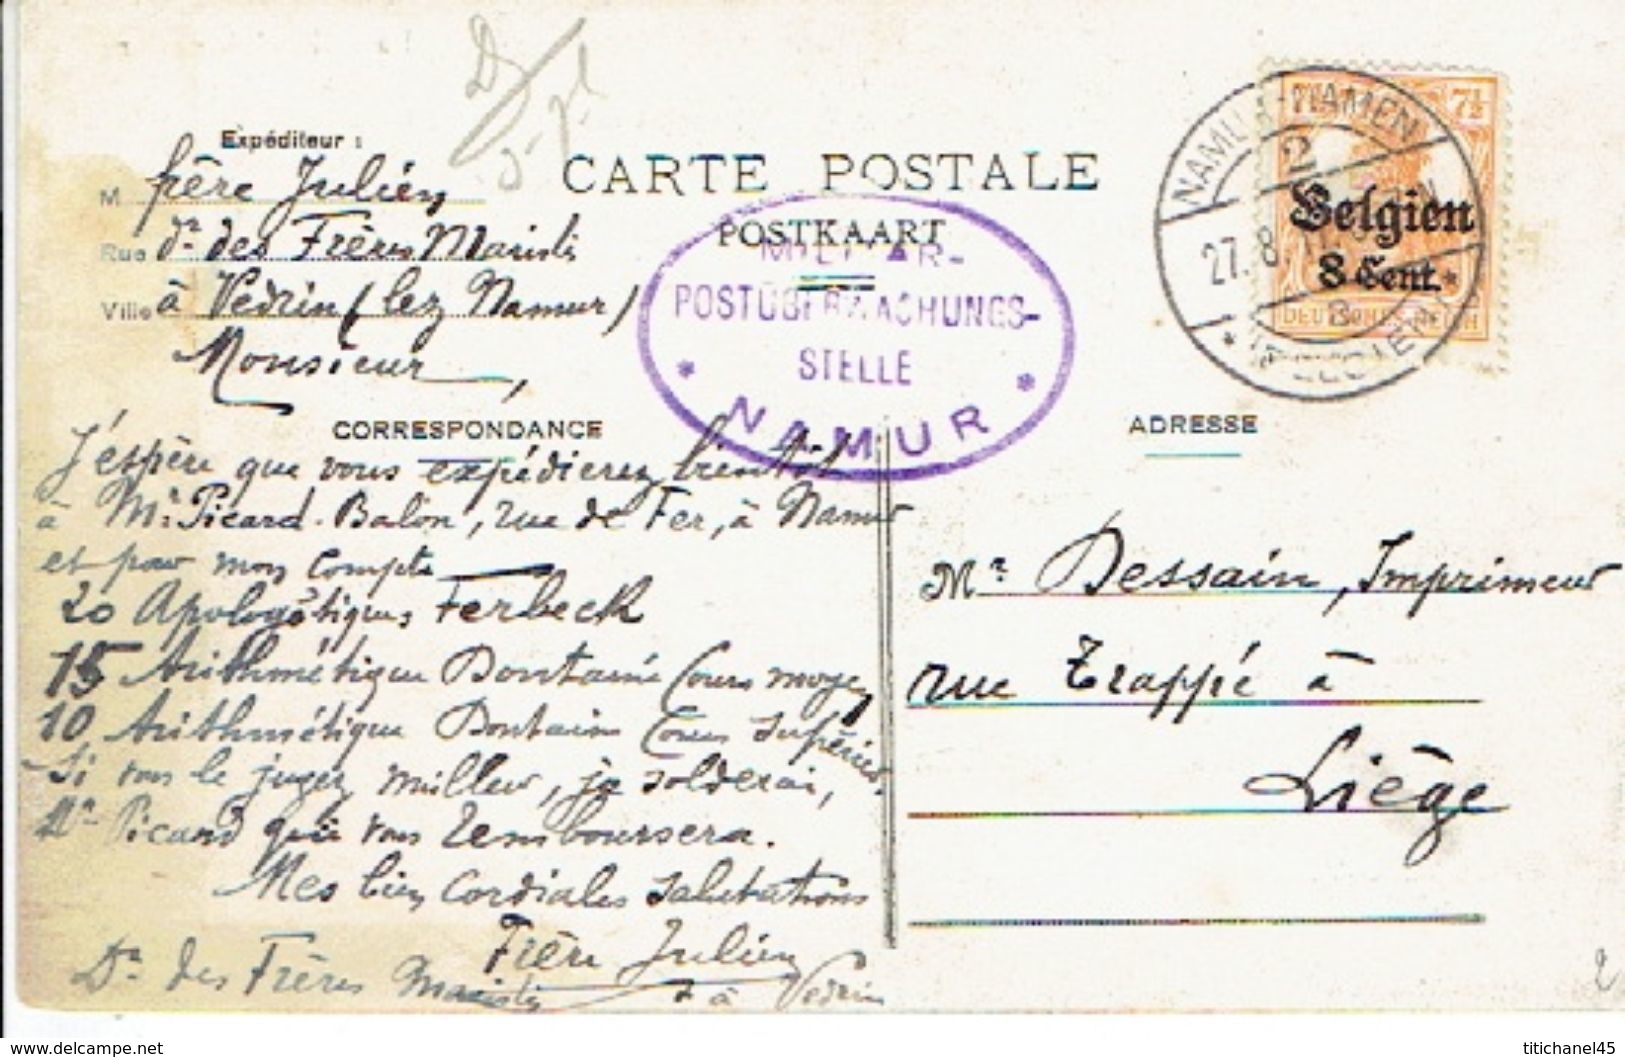 Expéditeur :
M frère Julien
Rue Dr. des Frères Maristes
Ville à Vedrin (lez Namur)
Monsieur,
CARTE POSTALE
POSTKAART
MILITÄR-
POSTÜBERWACHUNGS-
STELLE
* NAMUR *
NAMUR-NAMEN
2
27.8.
7½
Belgien
8 Cent.
DEUTSCHES REICH
CORRESPONDANCE
ADRESSE
J'espère que vous expédierez bientôt
à Mr. Picard-Balon, rue de Fer, à Namur
et pour mon compte
20 Apologétiques Ferbeck
15 Arithmétique Dontaine Cours moyen
10 Arithmétique Dontaine Cours supérieur
Si vous le jugez meilleur, je solderai,
Mr. Picard qui vous remboursera.
Mes bien cordiales salutations
Frère Julien
Dr. des Frères Maristes à Vedrin
Mr. Dessain, Imprimeur
rue Trappé à
Liège
2
www.delcampe.net
titichanel45